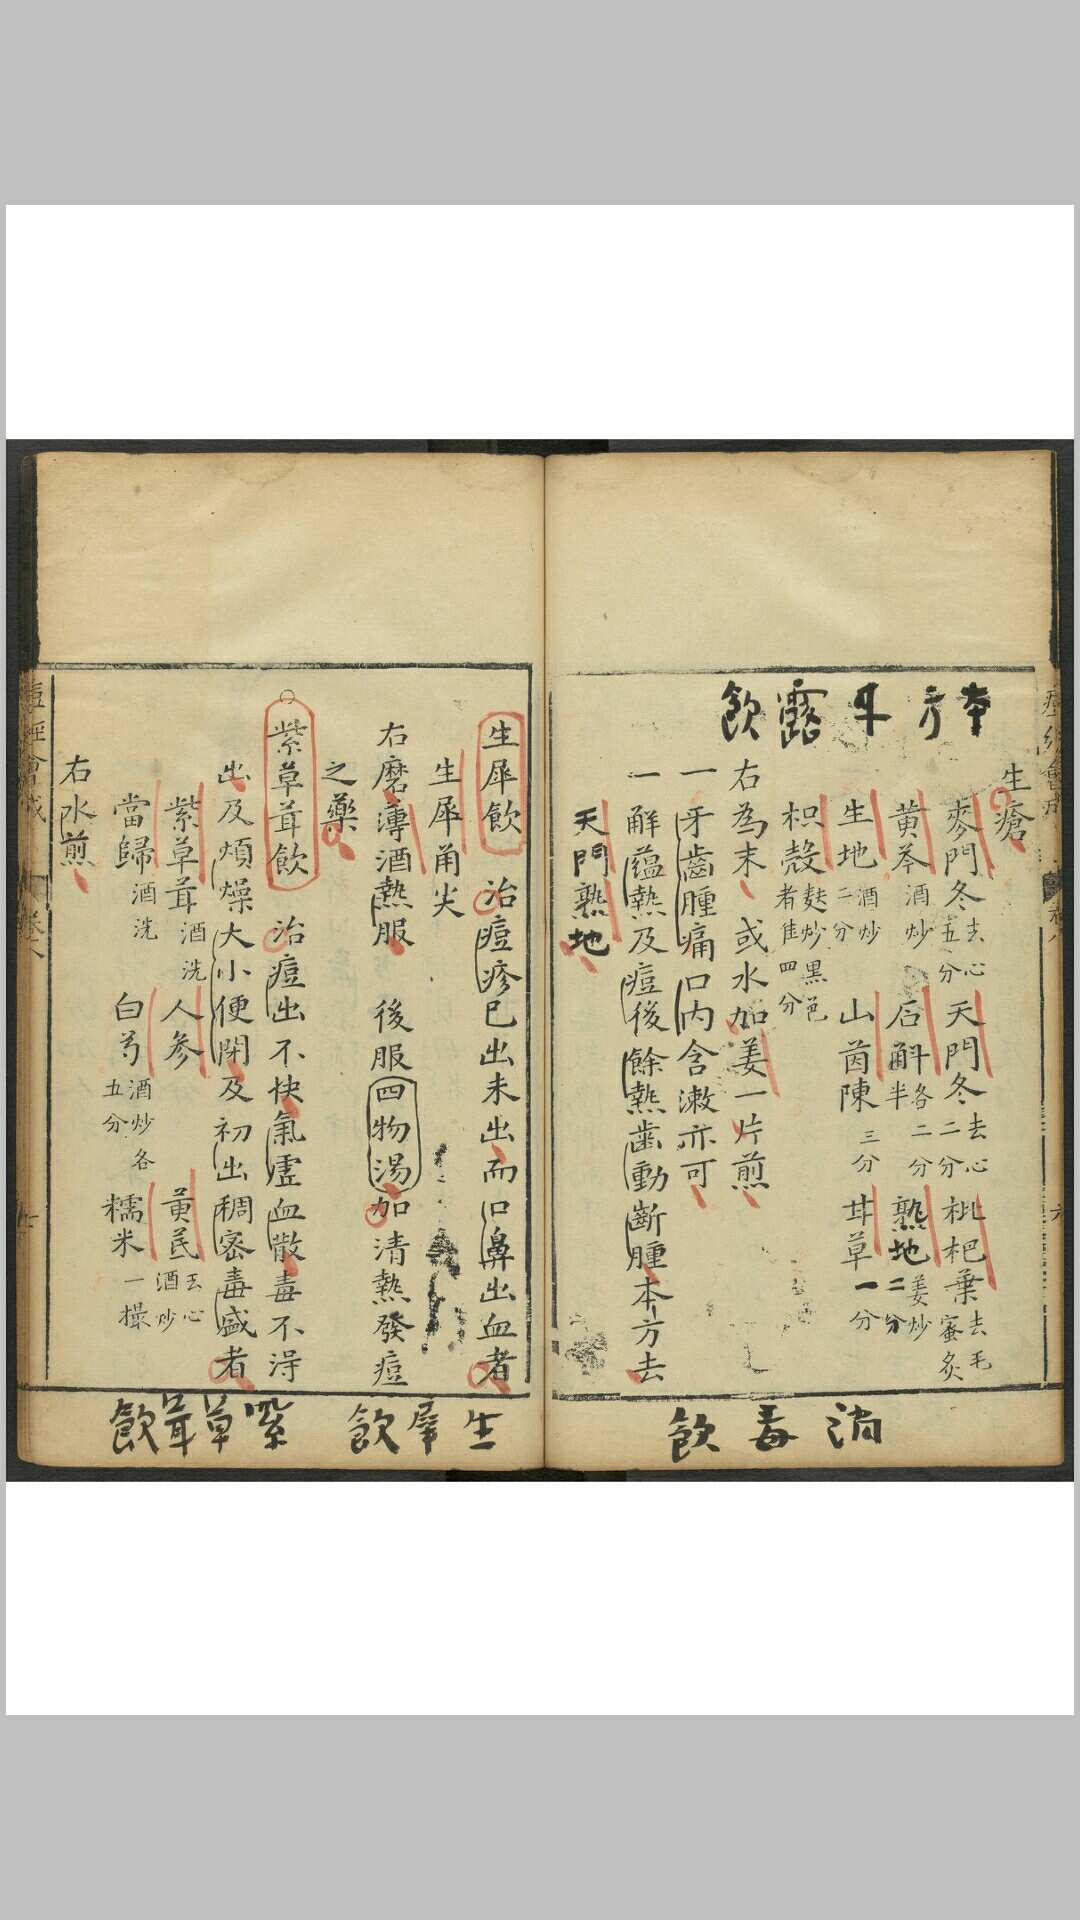 本方甘露飲
生瘡
麥門冬去心五分 天門冬去心二分 枇杷葉去毛蜜炙
黄芩酒炒 石斛各二分半 熟地姜炒二分
生地酒炒二分 山茵陳三分 甘草一分
枳殼麩炒黑色者佳四分
右為末或水加姜一片煎
一牙齒腫痛口內含漱亦可
一解蘊熱及痘後餘熱齒動齗腫本方去
天門熟地
消毒飲
生犀飲 治痘疹已出未出而口鼻出血者
生犀角尖
右磨薄酒熱服 後服四物湯加清熱發痘
之藥
紫草茸飲 治痘出不快氣虛血散毒不得
出及煩燥大小便閉及初出稠密毒盛者
紫草茸酒洗 人參 黄芪去心酒炒
當歸酒洗 白芍酒炒各五分 糯米一撮
右水煎
生犀飲
紫草茸飲